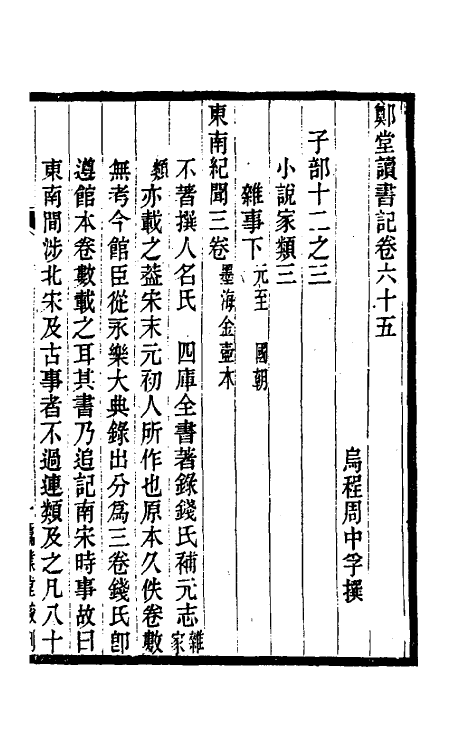 鄭堂讀書記卷六十五
烏程周中孚撰
子部十二之三
小說家類三
雜事下元至國朝
東南紀聞三卷墨海金壺本
不著撰人名氏　四庫全書著錄錢氏補元志雜家
類亦載之蓋宋末元初人所作也原本久佚卷數
無考今館臣從永樂大典錄出分爲三卷錢氏卽
遵館本卷數載之耳其書乃追記南宋時事故曰
東南間涉北宋及古事者不過連類及之凡八十